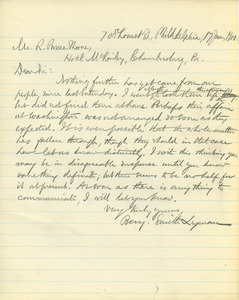 708 Locust St. Philadelphia, 17 Jan. 1900.
Mr. R.
Hotel McKinley, Chambersburg, Pa.
Dear Sir:
Nothing further has yet come from our
people, since last Saturday. I went
but did not find them at home. Perhaps their affair
at Washington was not arranged so soon as they
expected. It is even possible that the whole matter
has fallen through, though they should in that case
have let us know distinctly. I write this thinking you
may be in disagreeable suspense until you know
something definite, but there seems to be no help for
it at present. As soon as there is anything to
communicate, I will let you know.
Very truly yours,
Benj. Smith Lyman